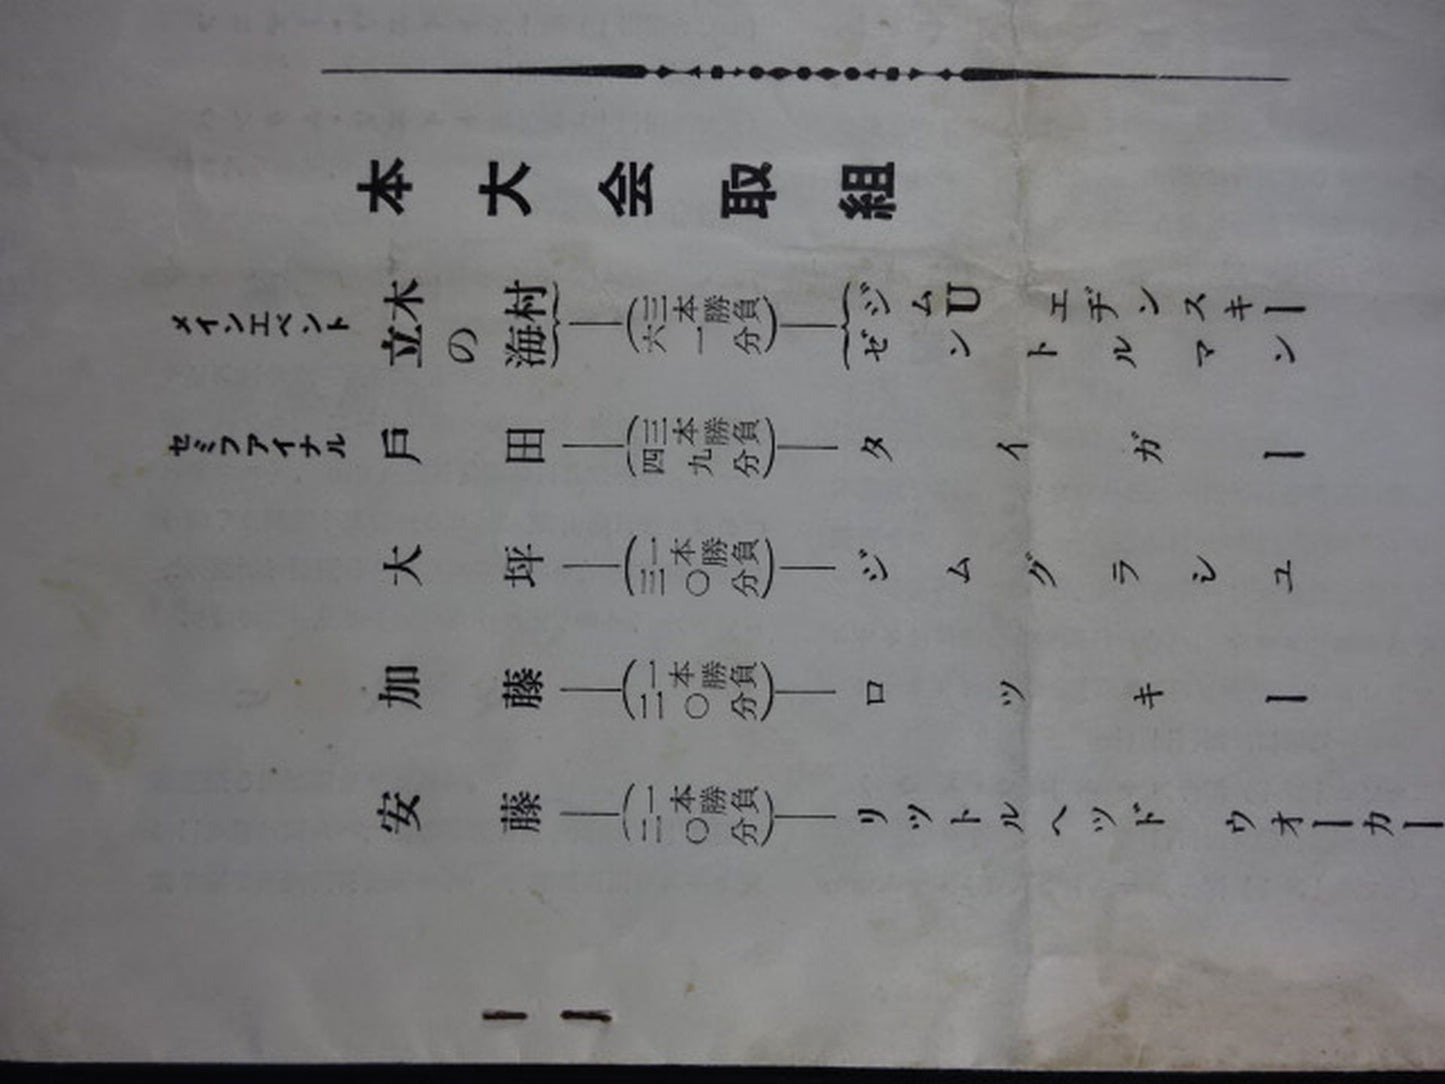 本大会取組
メインエベント 木村 三本勝負 ジムUエヂンスキー
立の海 六一分 ゼントルマン
セミフアイナル 戸田 三本勝負 四九分 タイガー
大坪 一本勝負 三〇分 ジムグラシユ
加藤 一本勝負 二〇分 ロツキー
安藤 一本勝負 二〇分 リツトルヘツド ウオーカー